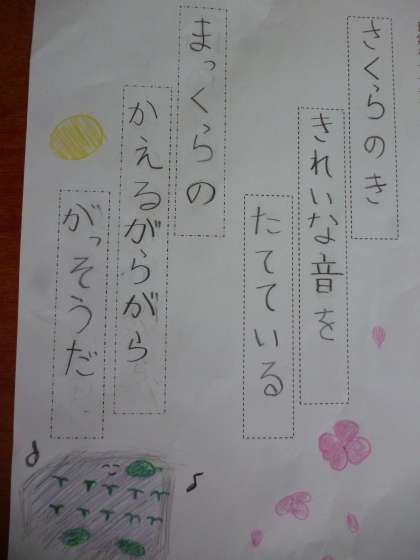 さくらのき
きれいな音を
たてている
まっくらの
かえるがらがら
がっそうだ